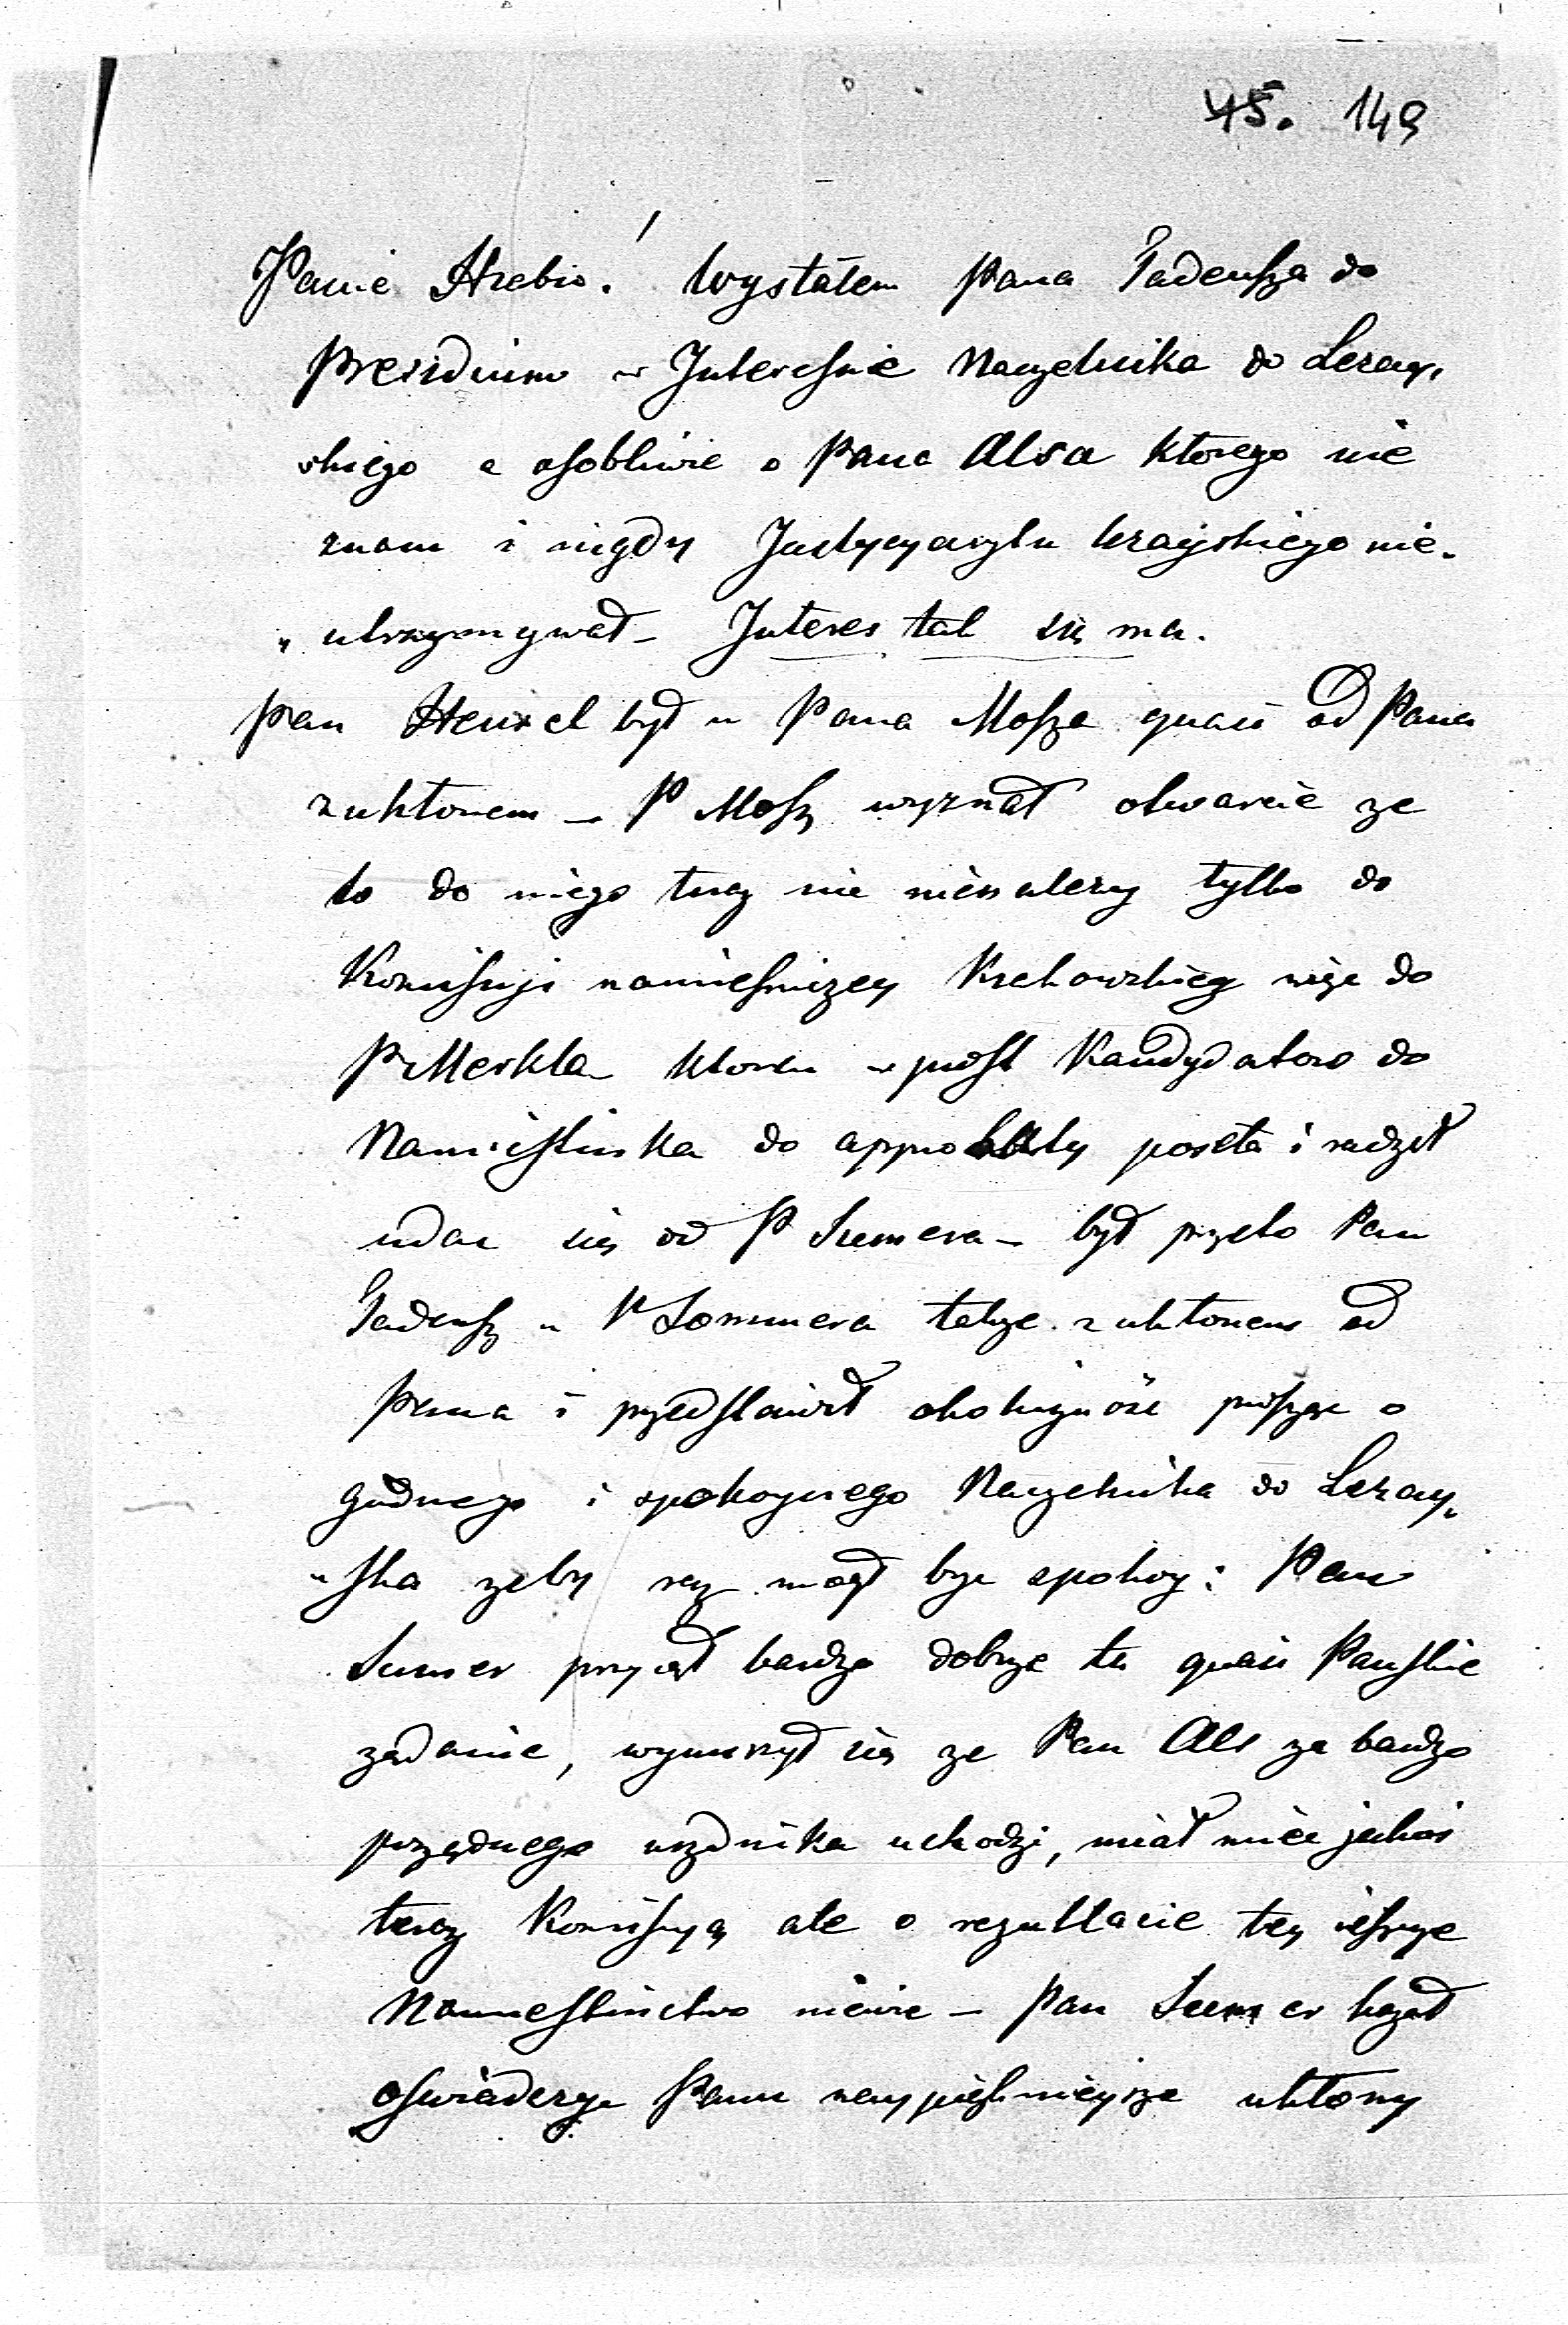 45. 149
Panie Hrabio! Wysłałem Pana Tadeusza do
Presidium w Interessie Naczelnika do Lezay,
skiego a osobliwie o Pana Alsa ktorego nie
znam i nigdy Justycyarytu lezayskiego nie-
"utrzymywał – Interes tak się ma.
Pan Hensel był u Pana Mosza quasi od Pana
z ukłonem – P Mosz wyznał otwarcie ze
to do niego teraz nie nienalezy tylko do
Komissyi namiesniczey Krakowskiey więc do
P Merkla ktoren w prost Kandydatow do
Namiestnika do approbaty poseła i radził
udac się od P Sumera – był przeto Pan
Tadeusz u P Sommera takze z ukłonem od
Pana i przedstawił okoliczność prosząc o
godnego i spokoynego Naczelnika do Lezay,
"ska zeby raz mogł byc spokoy: Pan
Sumer przyiął bardzo dobrze to quasi Panskie
ządanie, wynurzył się ze Pan Als za bardzo
porządnego urzędnika uchodzi, miał miec jakąś
teraz Komissyą ale o rezultacie tey ieszcze
Namiestnictwo niewie – Pan Sumer kazał
oswiadczyc Panu naypiekneysze ukłony